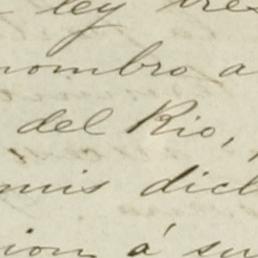 ley tre
nombro a
del Rio,
mis dich
ion á su